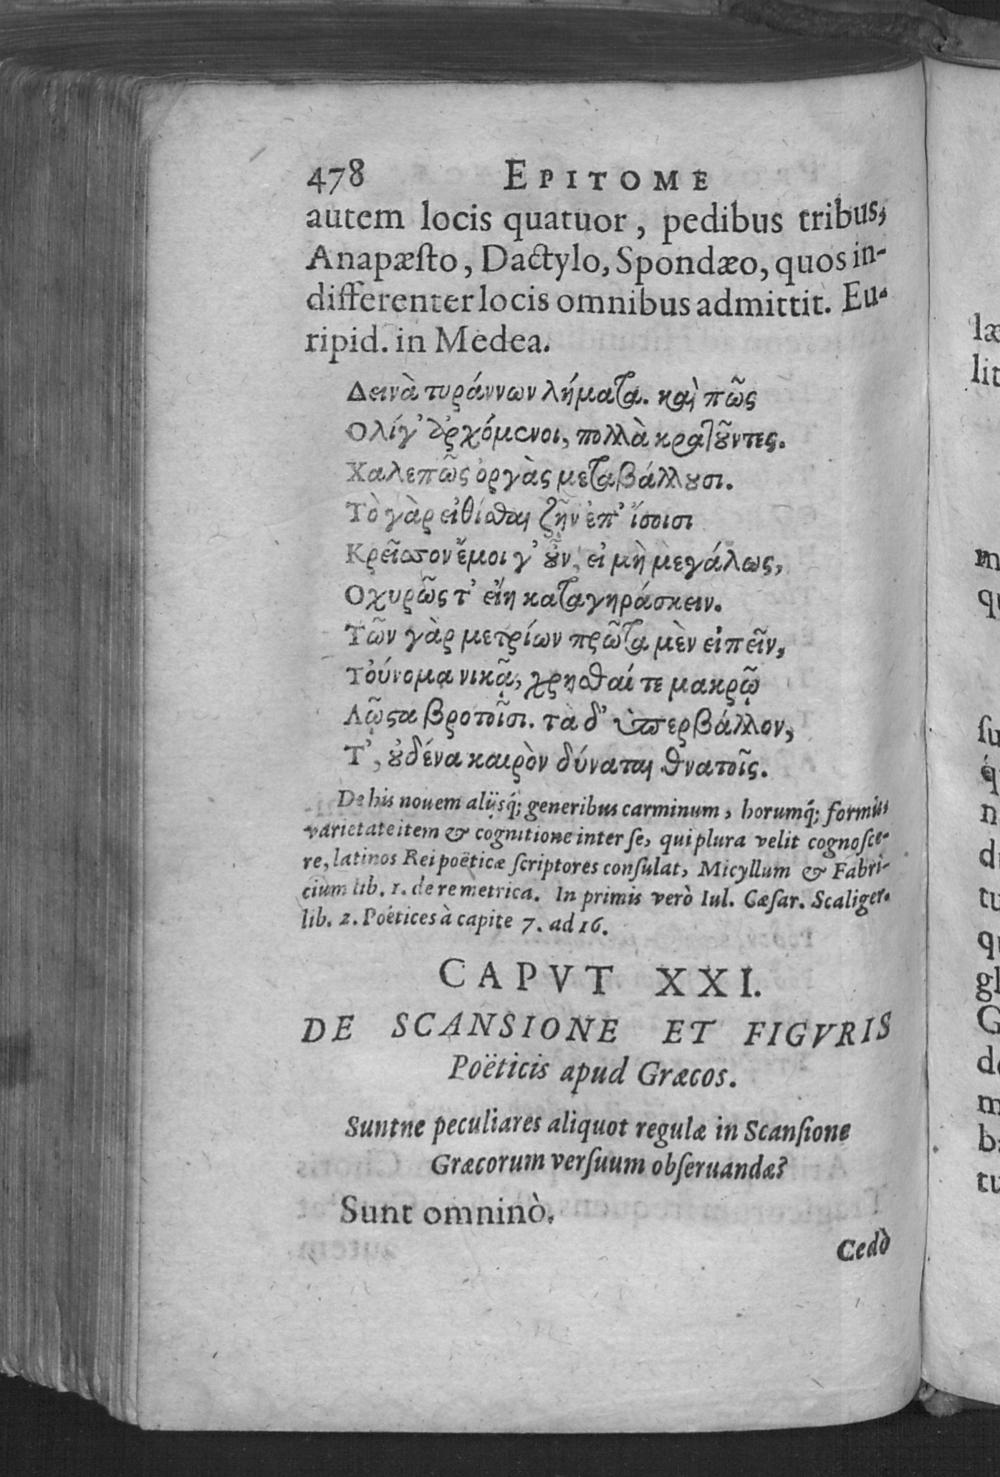 478 EPITOME
autem locis quatuor, pedibus tribus,
Anapæsto, Dactylo, Spondæo, quos in-
differenter locis omnibus admittit. Eu-
ripid. in Medea.
Δεινὰ τυράννων λήματα. καὶ πῶς
Ολίγ' ἀρχόμενοι, πολλὰ κρατοῦντες.
Χαλεπῶς ὀργὰς μεταβάλλουσι.
Τὸ γὰρ εἰθίσθαι ζῆν ἐπ' ἴσοισι
Κρεῖσσον ἔμοι γ' οὖν, εἰ μὴ μεγάλως,
Οχυρῶς τ' εἴη καταγηράσκειν.
Τῶν γὰρ μετρίων πρῶτα μὲν εἰπεῖν,
Τοὔνομα νικᾷ, χρῆσθαί τε μακρῷ
Λῷστα βροτοῖσι. τὰ δ' ὑπερβάλλον,
Τ', οὐδένα καιρὸν δύναται θνατοῖς.
De his nouem alijsq́; generibus carminum, horumq́; formis
varietate item & cognitione inter se, qui plura velit cognosce-
re, latinos Rei poëticæ scriptores consulat, Micyllum & Fabri-
cium lib. 1. de re metrica. In primis verò Iul. Cæsar. Scaliger.
lib. 2. Poëtices à capite 7. ad 16.
CAPVT XXI.
DE SCANSIONE ET FIGVRIS
Poëticis apud Græcos.
Suntne peculiares aliquot regulæ in Scansione
Græcorum versuum obseruandæ?
Sunt omninò.
Cedò